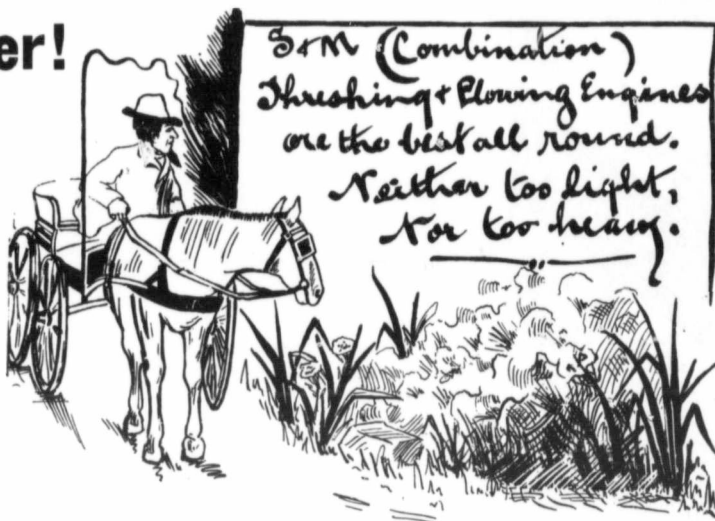 er!
S+M (Combination)
Threshing + Plowing Engines
are the best all round.
Neither too light,
Nor too heavy.